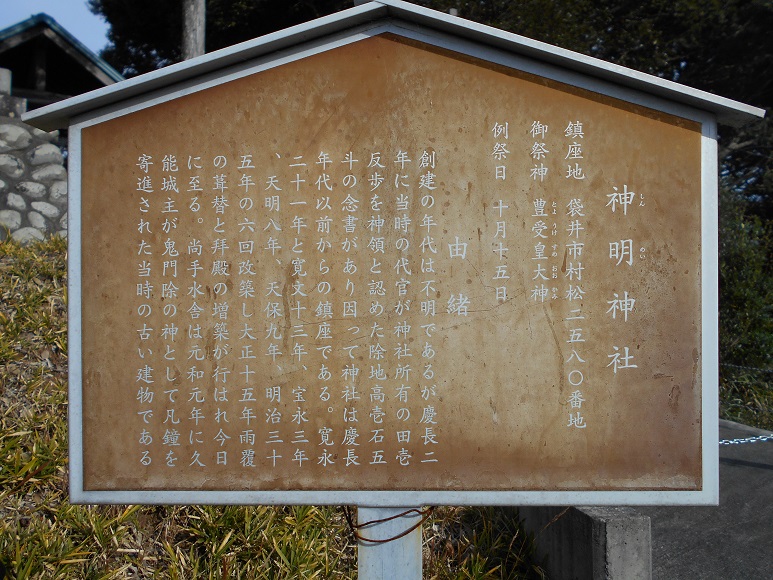 神明神社
しんめい
鎮座地　袋井市村松二五八〇番地
御祭神　豊受皇大神
とようけすめおおかみ
例祭日　十月十五日
由緒
創建の年代は不明であるが慶長二
年に当時の代官が神社所有の田壱
反歩を神領と認めた除地高壱石五
斗の念書があり因って神社は慶長
年代以前からの鎮座である。寛永
二十一年と寛文十三年、宝永三年
、天明八年、天保九年、明治三十
五年の六回改築し大正十五年雨覆
の葺替と拝殿の増築が行はれ今日
に至る。尚手水舎は元和元年に久
能城主が鬼門除の神として凡鐘を
寄進された当時の古い建物である